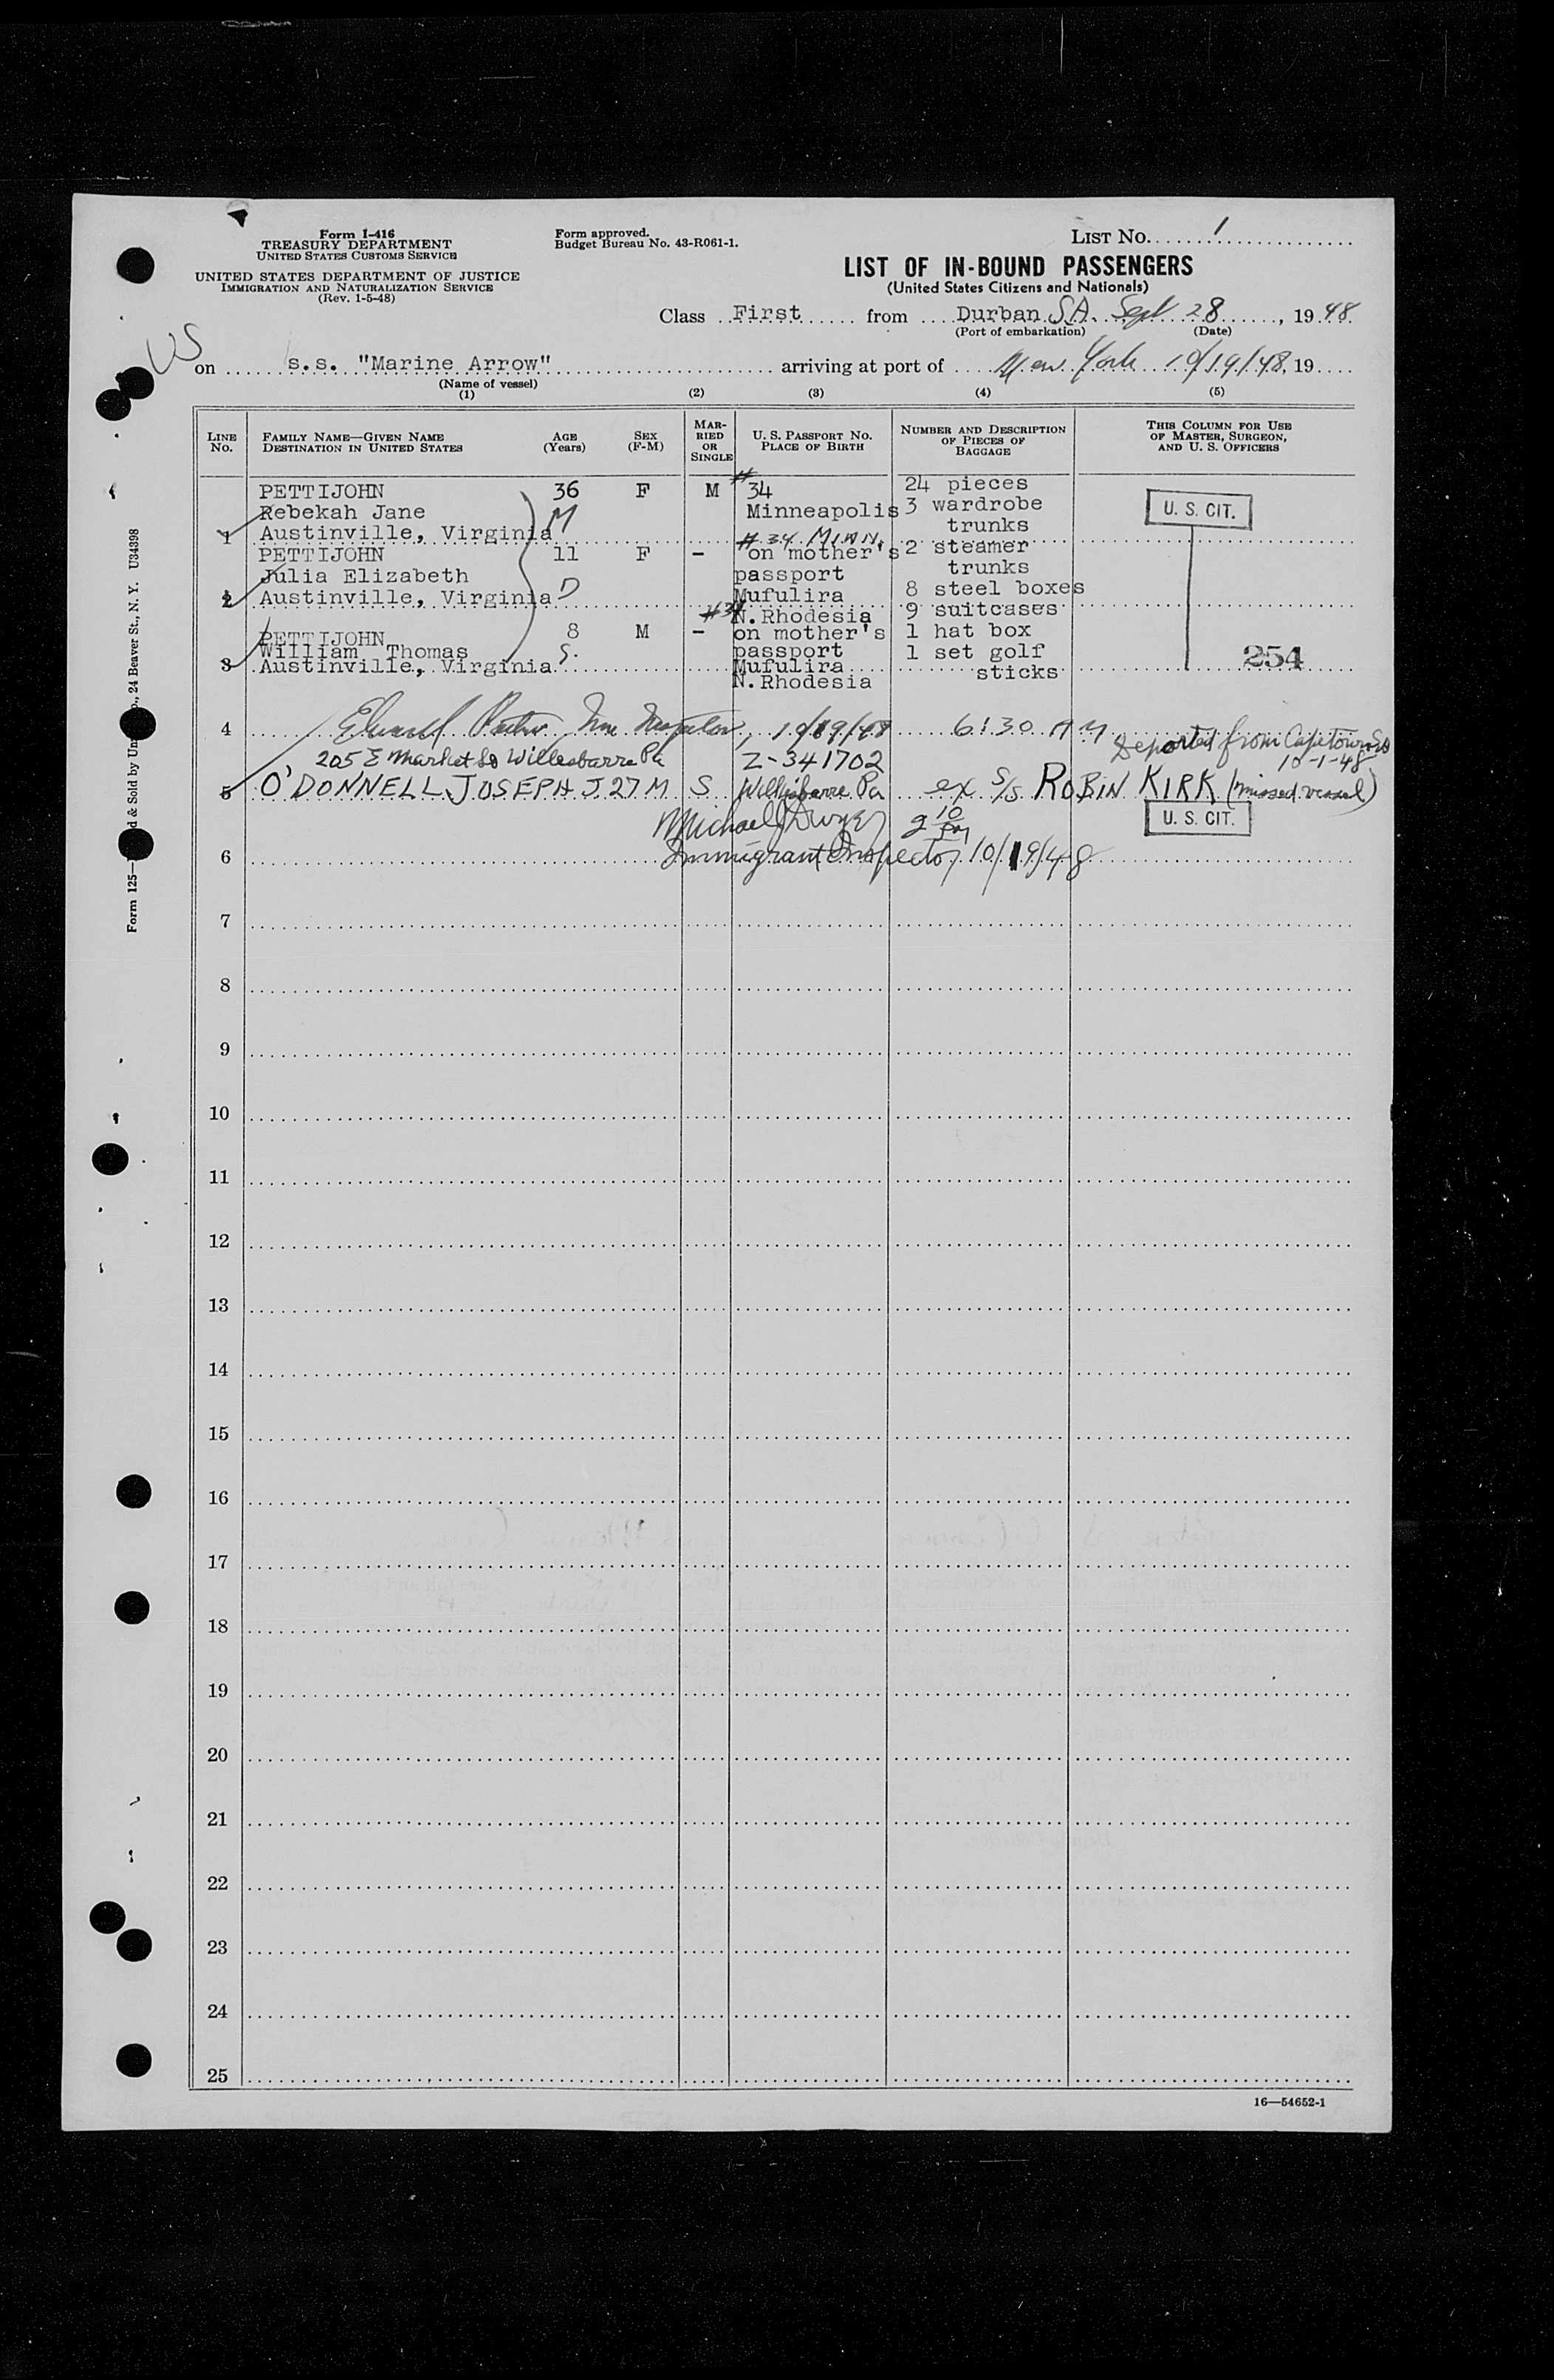 Form I-416
TREASURY DEPARTMENT
UNITED STATES CUSTOMS SERVICE
UNITED STATES DEPARTMENT OF JUSTICE
IMMIGRATION AND NATURALIZATION SERVICE
(Rev. 1-5-48)
Form approved.
Budget Bureau No. 43-R061-1.
LIST NO. 1
LIST OF IN-BOUND PASSENGERS
(United States Citizens and Nationals)
Class First from Durban SA. Sept 28, 1948
(Port of embarkation) (Date)
US
on s.s. "Marine Arrow" arriving at port of New York 10/19/48, 19
(Name of vessel)
(1) (2) (3) (4) (5)
LINE NO. FAMILY NAME—GIVEN NAME DESTINATION IN UNITED STATES AGE (Years) SEX (F-M) MARRIED OR SINGLE U. S. PASSPORT NO. PLACE OF BIRTH NUMBER AND DESCRIPTION OF PIECES OF BAGGAGE THIS COLUMN FOR USE OF MASTER, SURGEON, AND U. S. OFFICERS
PETTIJOHN 36 F M #34 24 pieces
Rebekah Jane M Minneapolis 3 wardrobe U. S. CIT.
1 Austinville, Virginia # 34 Minn. trunks
PETTIJOHN 11 F - on mother's 2 steamer
Julia Elizabeth passport trunks
2 Austinville, Virginia D Mufulira 8 steel boxes
#34 N. Rhodesia 9 suitcases
PETTIJOHN 8 M - on mother's 1 hat box
William Thomas S. passport 1 set golf 254
3 Austinville, Virginia Mufulira sticks
N. Rhodesia
4 Edward 10/19/48 6:30 AM
205 E Market St Willesbarre Pa Z-341702 Deported from Capetown SA
10-1-48
5 O'DONNELL JOSEPH J 27 M S Wilkesbarre Pa ex S/S ROBIN KIRK (missed vessel)
Michael J Dwyer 2 10 PM U. S. CIT.
6 Immigrant Inspector 10/19/48
7
8
9
10
11
12
13
14
15
16
17
18
19
20
21
22
23
24
25
16—54652-1
Form 125— d & Sold by Un , 24 Beaver St., N. Y. U34898